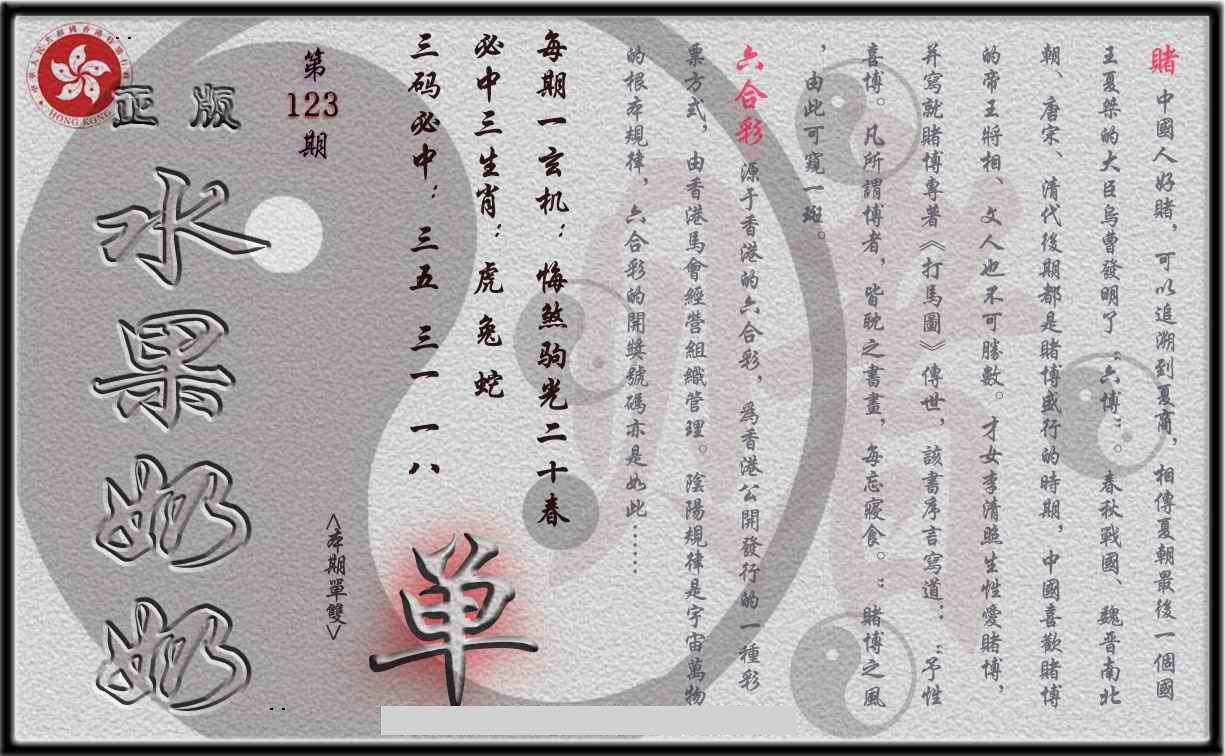 賭 中國人好賭，可以追溯到夏商，相傳夏朝最後一個國
王夏桀的大臣烏曹發明了“六博”。春秋戰國、魏晋南北
朝、唐宋、清代後期都是賭博盛行的時期，中國喜歡賭博
的帝王將相、文人也不可勝數。才女李清照生性愛賭博，
并寫就賭博專著《打馬圖》傳世，該書序言寫道：：“予性
喜博。凡所謂博者，皆眈之書畫，每忘寢食。：賭博之風
，由此可窺一斑。
六合彩 源于香港的六合彩，爲香港公開發行的一種彩
票方式，由香港馬會經營組織管理。陰陽規律是宇宙萬物
的根本規律，六合彩的開獎號碼亦是如此……
每期一玄机：悔煞驹光二十春
必中三生肖：虎 兔 蛇
三码必中：三五 三一 一八
單
<本期單雙>
第
123
期
正版
水果奶奶
HONG KONG